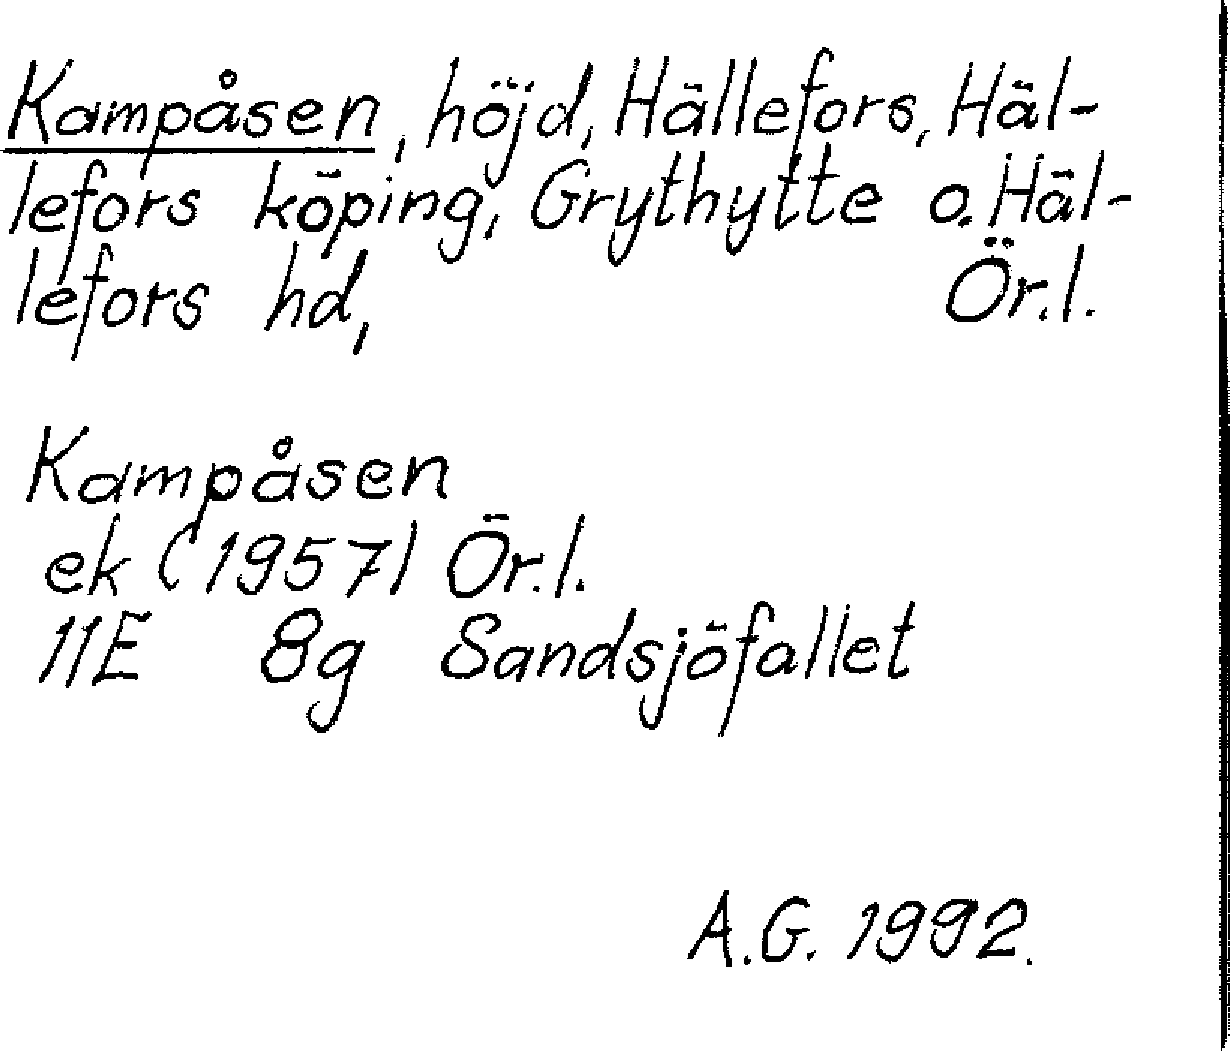 Kampåsen, höjd, Hällefors, Häl-
lefors köping, Grythytte o. Häl-
lefors hd, Ör.l.
Kampåsen
ek (1957) Ör.l.
11E 8g Sandsjöfallet
A.G. 1992.